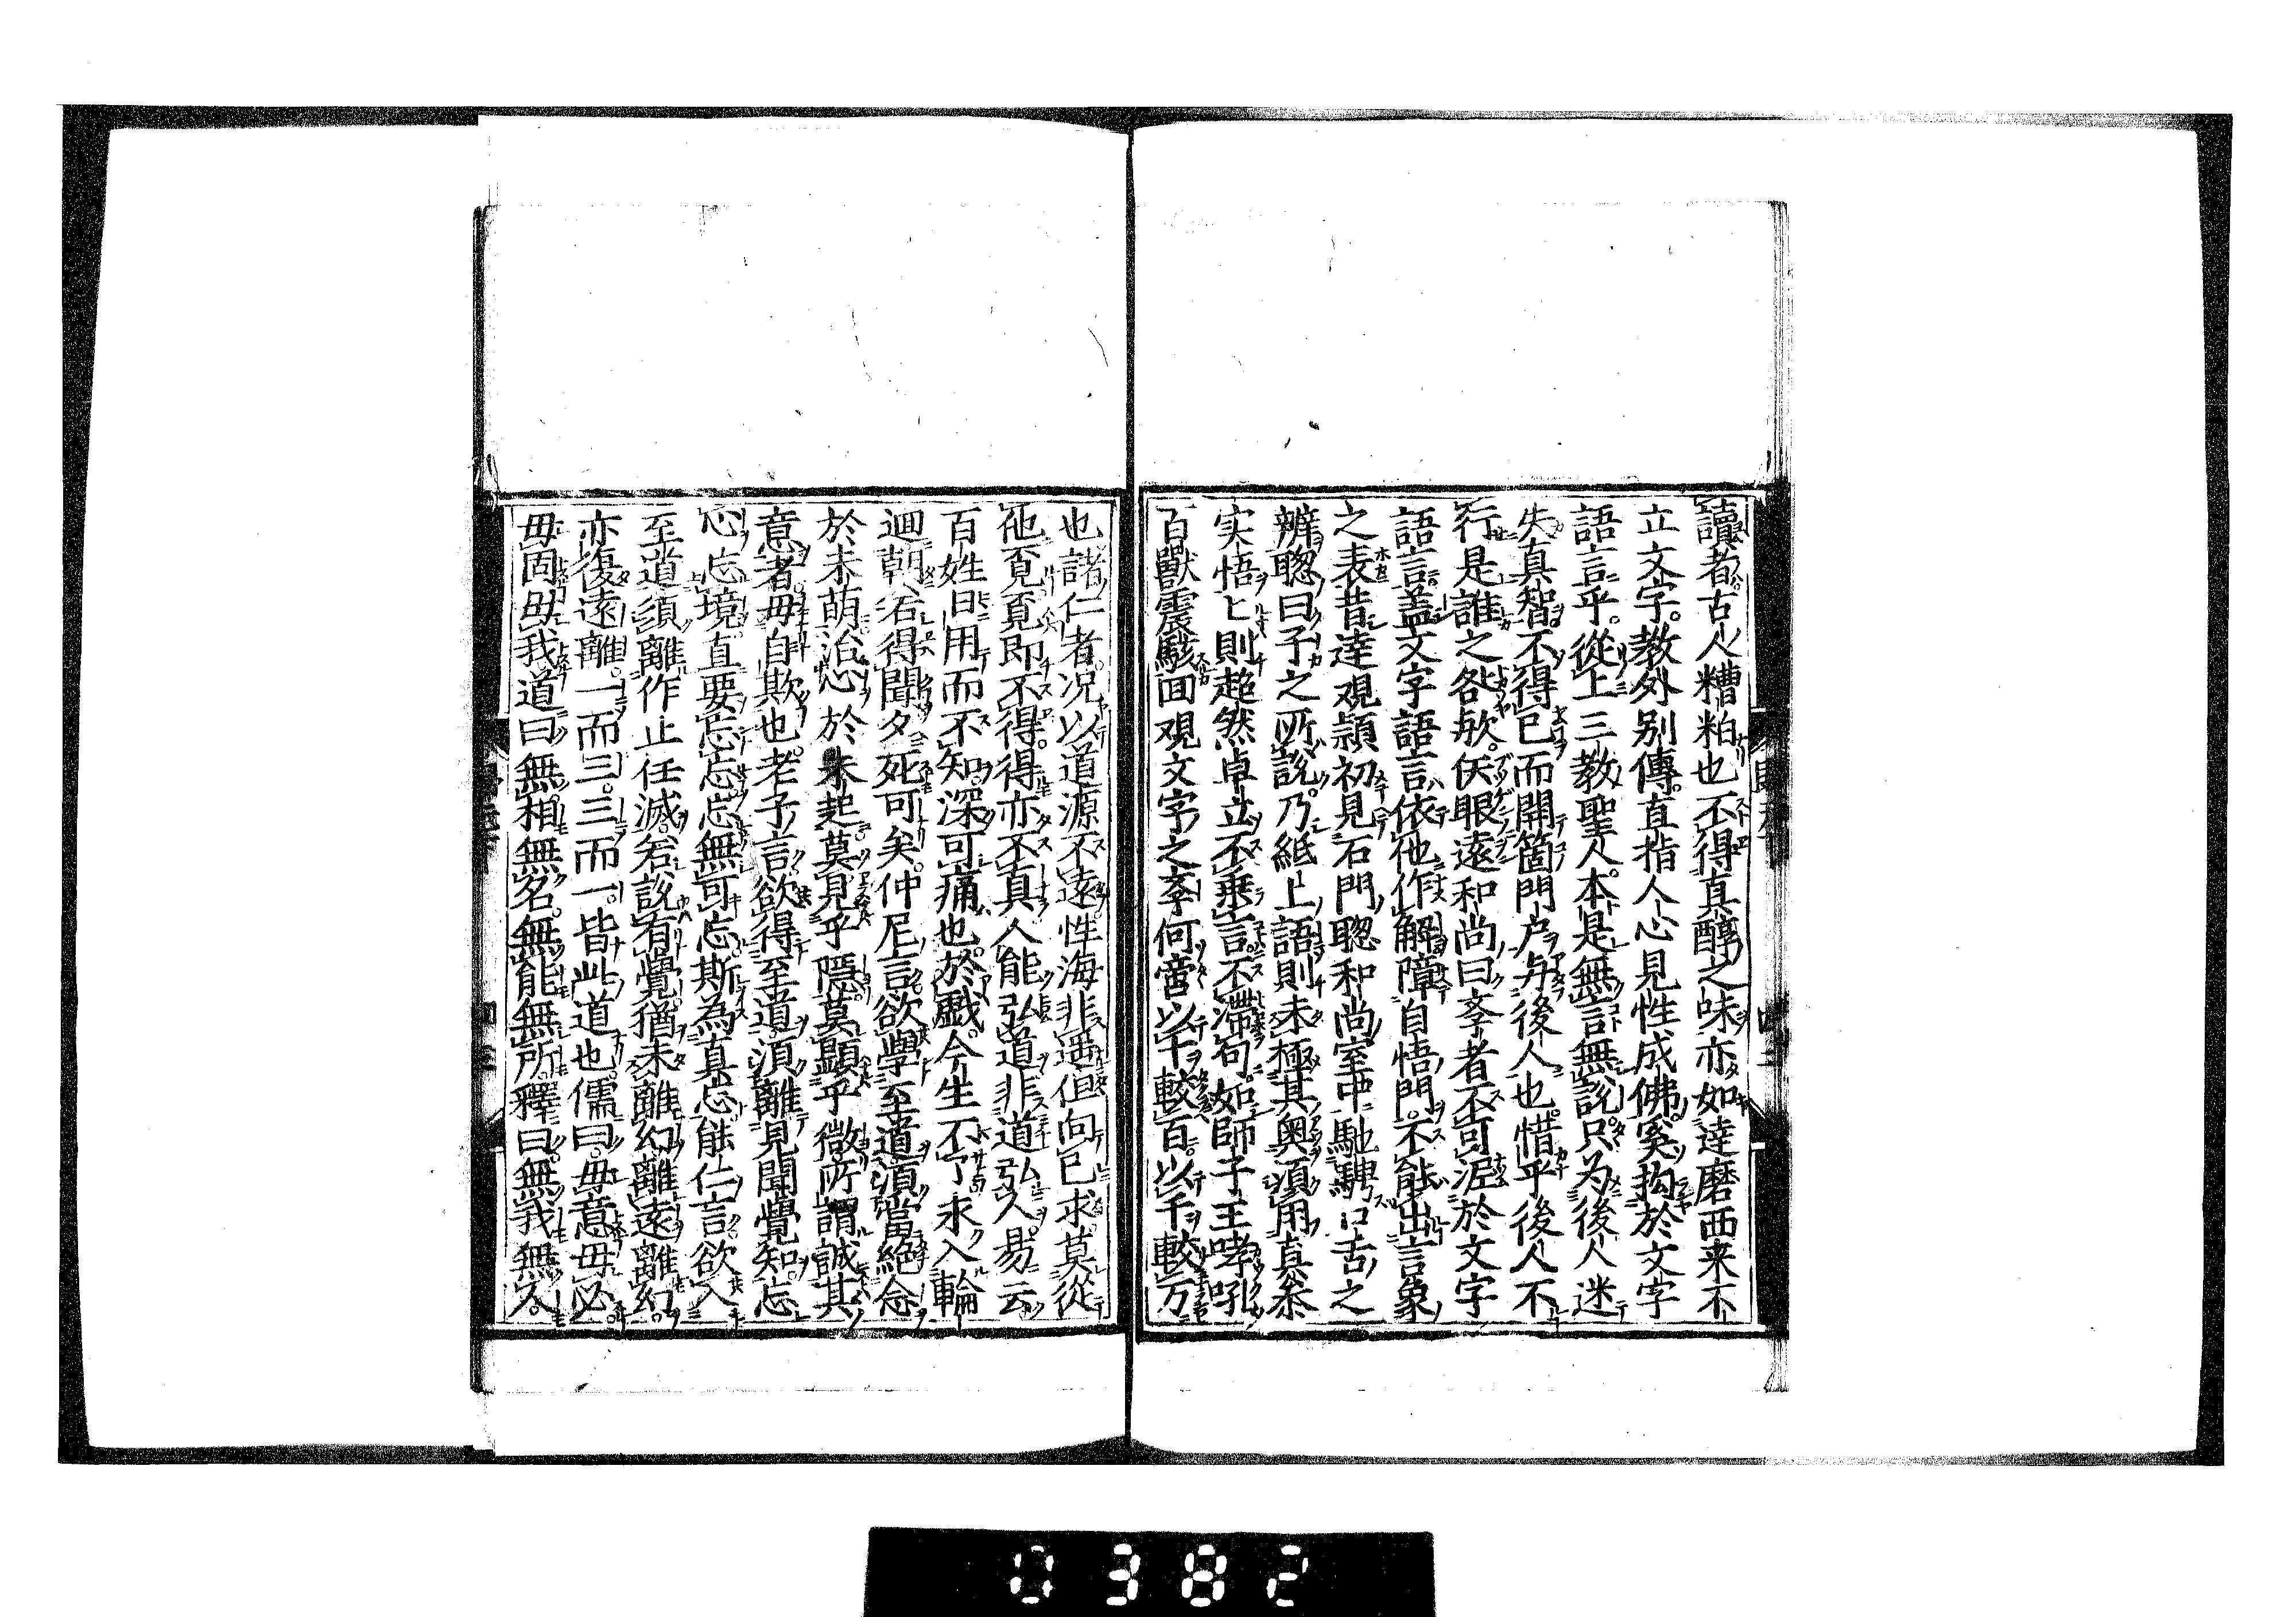 讀者古人糟粕也不得真醇之味亦如達磨西来不
立文字。教外别傳。直指人心見性成佛奚拘於文字
語言乎。從上三教聖人。本是無言無説只为後人迷
失真智。不得已而開箇門户与後人也。惜乎後人不
行是誰之咎欤。仸眼遠和尚曰斈者不可泥於文字
語言。盖文字語言依他作解障自悟門。不能出言象
之表昔達观頴初見石門聦和尚室中馳騁口舌之
辨聦曰子之所説。乃紙上語則未極其奥湏用真叅
实悟〻則超然卓立不乗言不滯句。如師子王哮吼
百獸震駭回观文字之斈何啻以十較百。以千較万
也諸仁者。况以道源不遠性海非遥但向己求莫從
他覔覔即不得。得亦不真人能弘道非道弘人。易云
百姓日用而不知。深可痛也。於戯。今生不了永入輪
迴朝若得聞夕死可矣。仲尼言欲學至道湏當絕念
於未萌治心於未起莫見乎隱莫顯乎微所謂誠其
意者毋自欺也。老子言欲得至道湏離見聞覺知。忘
心忘境。直要忘忘忘無可忘斯為真忘能仁言欲入
至道須離作止任滅。若説有覺猶未離幻離遠離幻。
亦復遠離。一而三。三而一。皆此道也。儒曰。毋意毋必。
毋固毋我道曰無相無名。無能無所。釋曰。無我無人。
0382